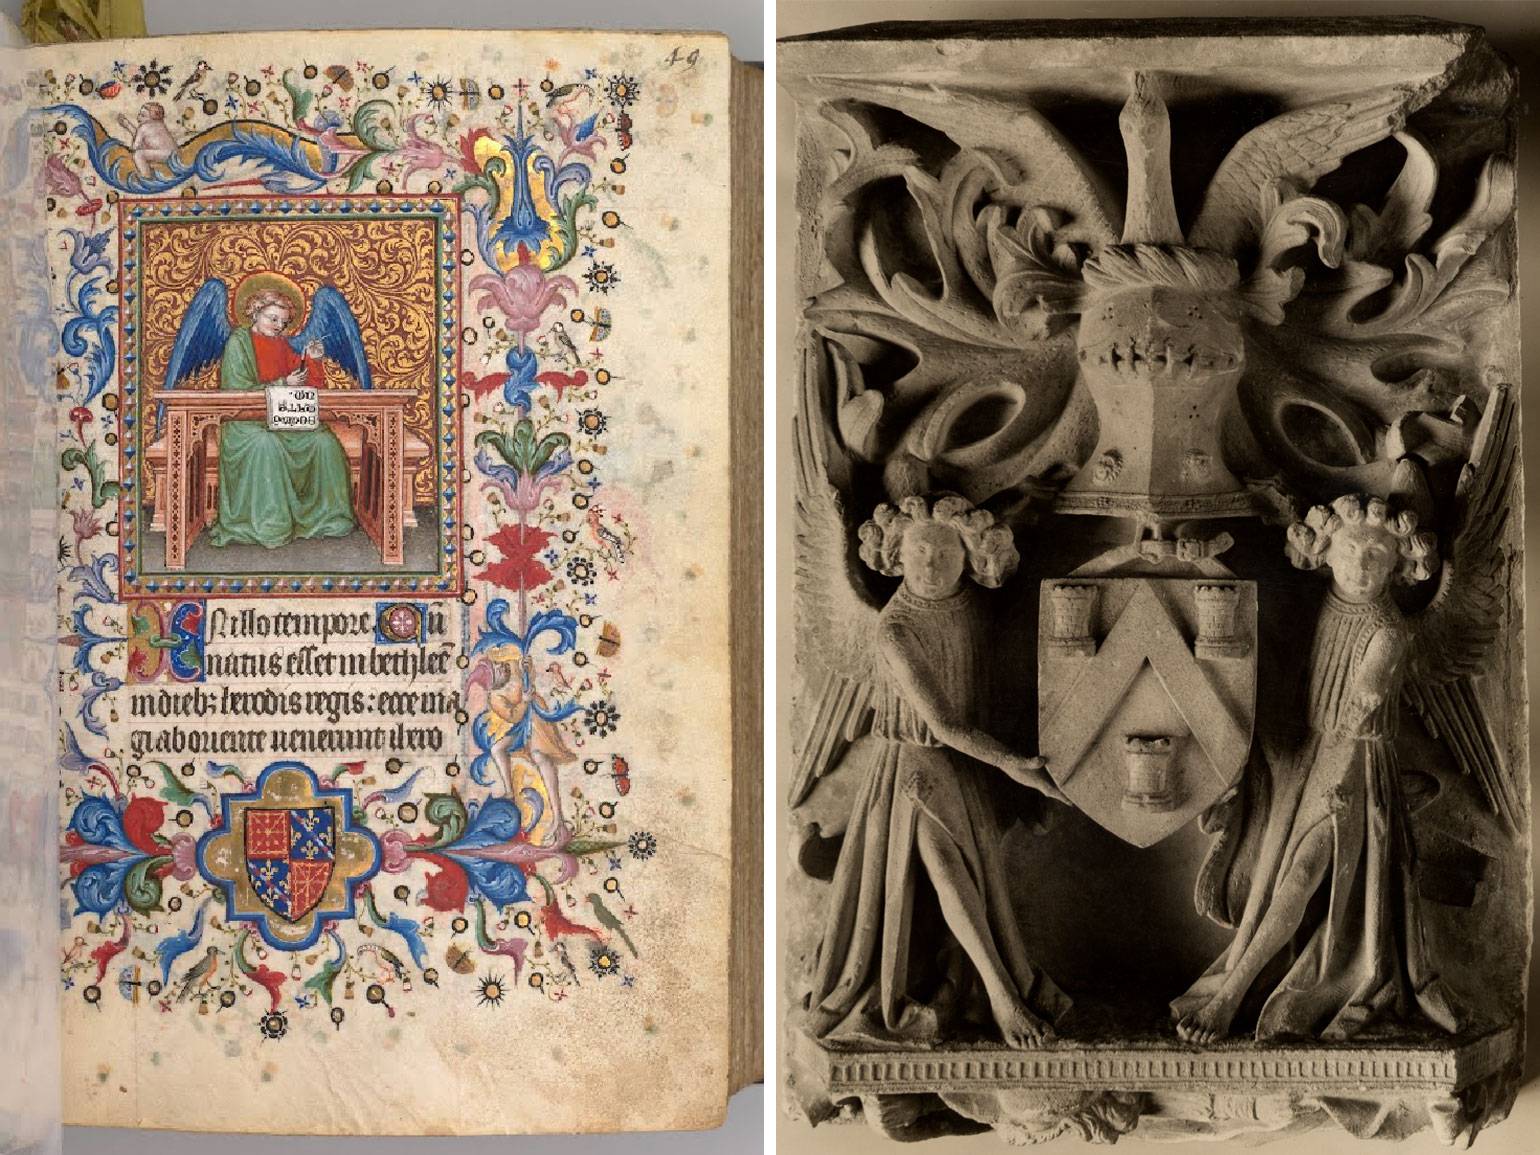 49
IN illo tempore. Cū
natus esset in bethleē
in dieb; herodis regis: ecce ma
gi ab oriente uenerunt ihero